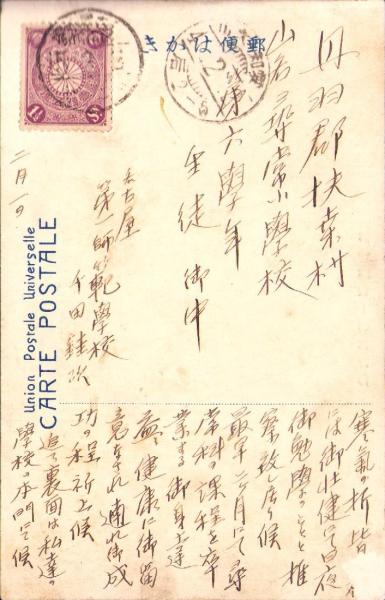 郵便はかき
丹羽郡扶桑村
山名尋常小學校
第六學年
生徒御中
名古屋
第一師範學校
千田
二月一日
Union Postale Universelle
CARTE POSTALE
寒氣の折皆
には御壮健で日夜
御勉學のことと推
察致し居り候
最早二ヶ月にて尋
常科の課程を卒
業する御身上達
益々健康に御留
意なされ適れ御成
功の程祈上候
追て裏面は私達の
學校本門にて候